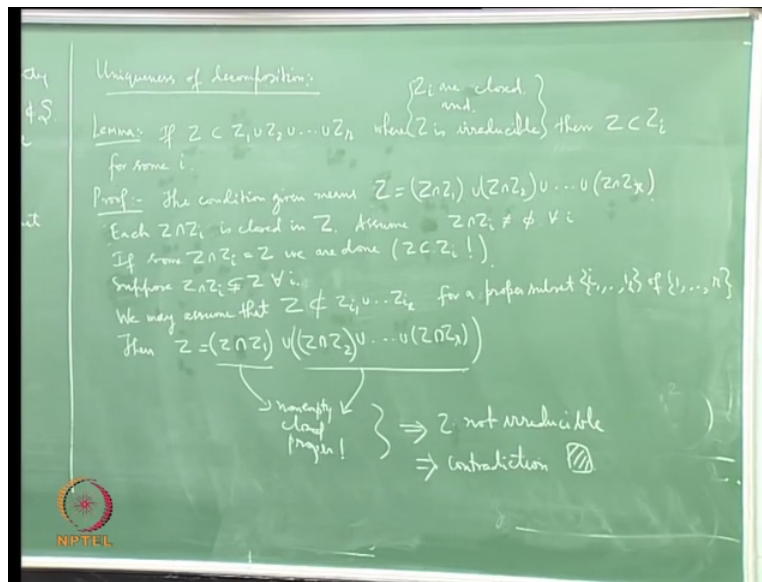 Uniqueness of decomposition:-
Lemma:- If Z ⊂ Z₁ ∪ Z₂ ∪ ... ∪ Zₙ where {Zᵢ are closed. and. Z is irreducible} then Z ⊂ Zᵢ
for some i.
Proof:- The condition given means Z = (Z∩Z₁) ∪ (Z∩Z₂) ∪ ... ∪ (Z∩Zᵣ)
Each Z∩Zᵢ is closed in Z. Assume Z∩Zᵢ ≠ φ ∀ i
If some Z∩Zᵢ = Z we are done (Z ⊂ Zᵢ !).
Suppose Z∩Zᵢ ⊊ Z ∀ i.
We may assume that Z ⊄ Zᵢ₁ ∪ ... Zᵢ for a proper subset {i₁, .., i} of {1, ..., n}
Then Z = (Z∩Z₁) ∪ ((Z∩Z₂) ∪ ... ∪ (Z∩Zᵣ))
nonempty
closed
proper!
} ⇒ Z not irreducible
⇒ contradiction
& S.
NPTEL